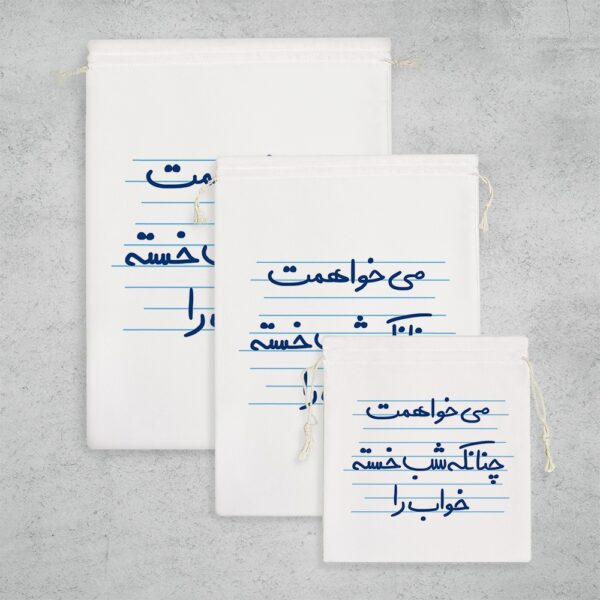 همت
خسته
را
می خواهمت
شب خسته
را
می خواهمت
چنانکه شب خسته
خواب را